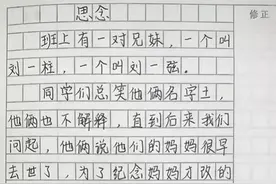 思念
修正
班上有一对兄妹，一个叫
刘一柱，一个叫刘一弦。
同学们总笑他俩名字土，
他俩也不解释，直到后来我们
问起，他俩说他们的妈妈很早
去世了，为了纪念妈妈才改的